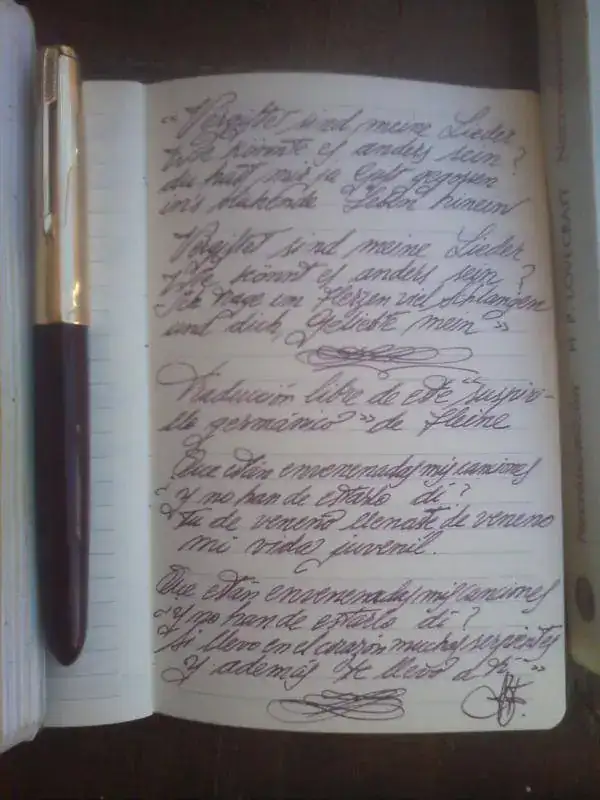 "Vergiftet sind meine Lieder
Wie könnte es anders sein?
du hast mir ja Gift gegossen
ins blühende Leben hinein
Vergiftet sind meine Lieder
Wie könnt es anders sein?
Ich trage im Herzen viel Schlangen
und dich, Geliebte mein"
Traducción libre de este "suspiri-
llo germánico" de Heine
Que están envenenadas mis canciones
"Y no han de estarlo di?
Tu de veneno llenaste de veneno
mi vida juvenil.
Que están envenenadas mis canciones
"Y no han de estarlo di?
Si llevo en el corazón muchas serpientes
Y además te llevo a ti"
H. P. LOVECRAFT